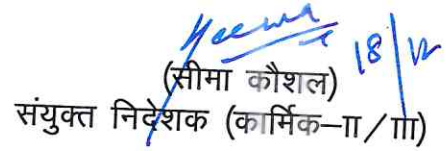 18/12
(सीमा कौशल)
संयुक्त निदेशक (कार्मिक–II/III)